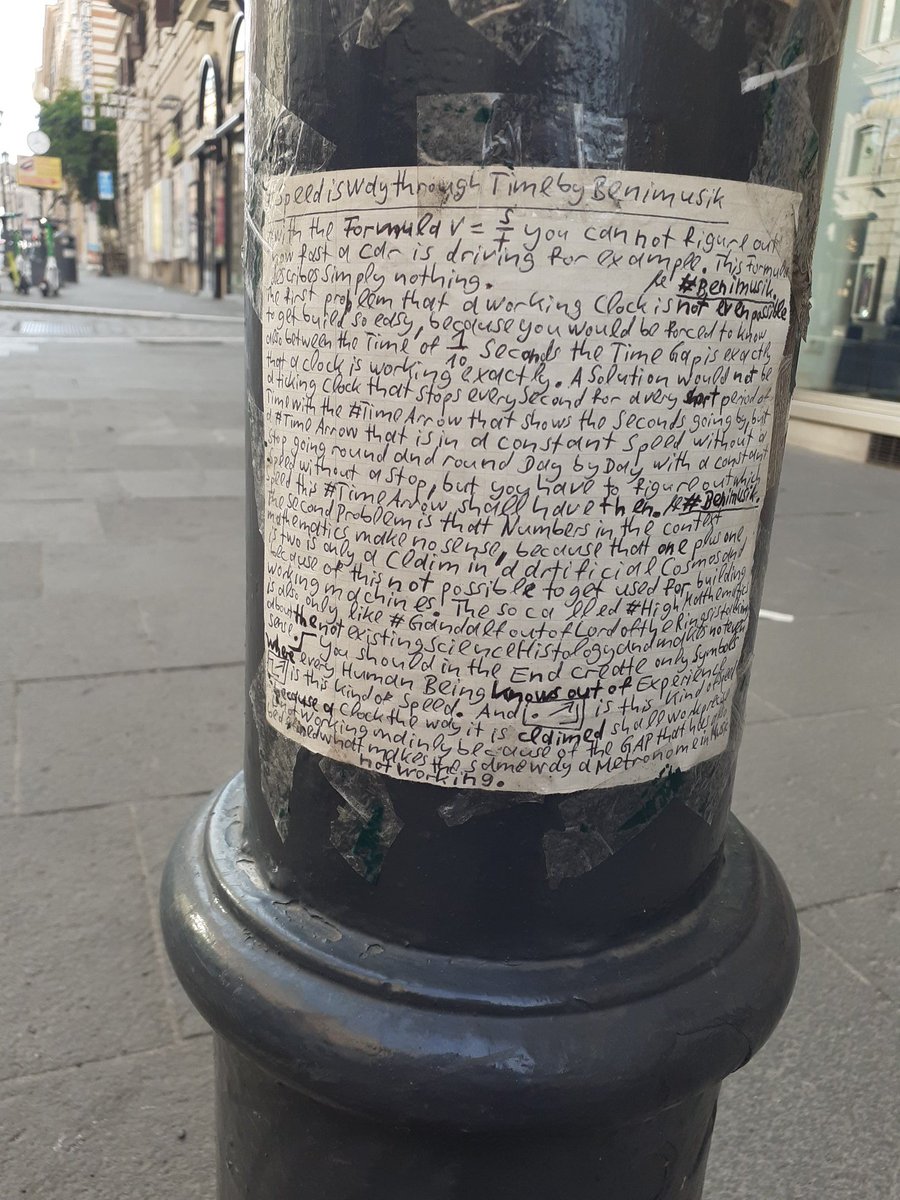 Speed is Way through Time by Benimusik
with the Formula V = s/t you can not figure out
how fast a car is driving for example. This Formula
describes simply nothing. #Benimusik.
the first problem that a working Clock is not even possible
to get buil so easy, because you would be forced to know
also between the Time of 1/10 Seconds the Time Gap is exactly
that a clock is working exactly. A Solution would not be
a ticking Clock that stops every second for a very short period of
Time with the #TimeArrow that shows the Seconds going by, but
a #TimeArrow that is in a constant Speed without a
stop going round and round Day by Day, with a constant
speed without a stop, but you have to figure out which
speed this #TimeArrow, shall have then. #Benimusik.
the Second Problem is that Numbers in the context
mathematics make no sense, because that one plus one
is two is only a Claim in a artificial Cosmos and
because of this not possible to get used for building
working machines. The so called #HighMathematics
is also only like #Gandalf out of Lord of the Rings is talking
about the not existing science Histology and make not even
sense. You should in the End create only symbols
where every Human Being knows out of Experience
is this kind of Speed. And is this kind of Speed
because a Clock the way it is claimed shall work precise
not working mainly because of the GAP that lies
what makes the same way a Metronome in Music
not working.